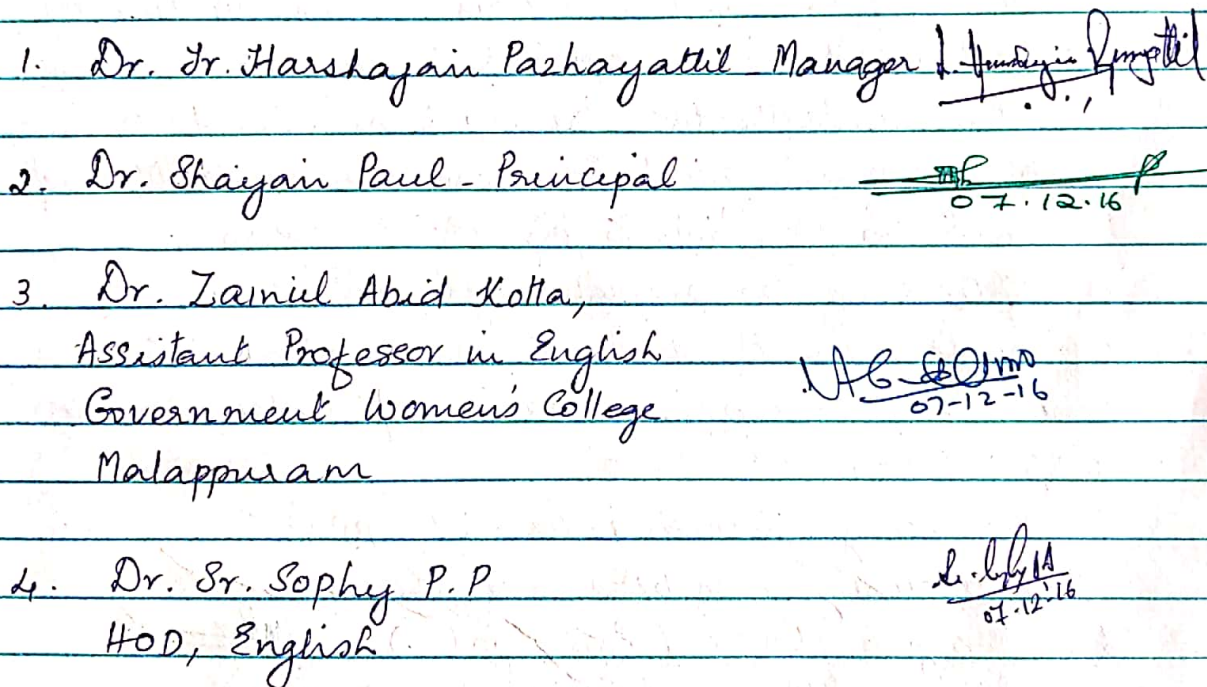 1. Dr. Fr. Harshajan Pazhayattil - Manager
2. Dr. Shaijan Paul - Principal
07.12.16
3. Dr. Zainul Abid Kotta,
Assistant Professor in English
07-12-16
Government Women's College
Malappuram
4. Dr. Sr. Sophy P.P
07-12-16
HOD, English